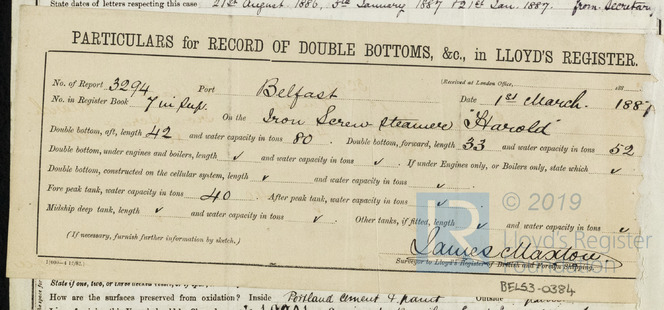 State dates of letters respecting this case 21st August 1886, 3rd January 1887 & 21st Jan. 1887. from Secretary
PARTICULARS for RECORD OF DOUBLE BOTTOMS, &c., in LLOYD'S REGISTER.
(Received at London Office, 188
No. of Report 3294 Port Belfast Date 1st March. 1887
No. in Register Book 7 in Sup. On the Iron Screw Steamer "Harold"
Double bottom, aft, length 42 and water capacity in tons 80. Double bottom, forward, length 33 and water capacity in tons 52
Double bottom, under engines and boilers, length ✓ and water capacity in tons ✓. If under Engines only, or Boilers only, state which ✓
Double bottom, constructed on the cellular system, length ✓ and water capacity in tons ✓
Fore peak tank, water capacity in tons 40. After peak tank, water capacity in tons ✓
Midship deep tank, length ✓ and water capacity in tons ✓. Other tanks, if fitted, length ✓ and water capacity in tons ✓
(If necessary, furnish further information by sketch.)
James Maxton.
Surveyor to Lloyd's Register of British and Foreign Shipping.
© 2019
Lloyd's Register
Foundation
BELS3-0384
State if one, two, or
How are the surfaces preserved from oxidation? Inside Portland Cement & paint Outside